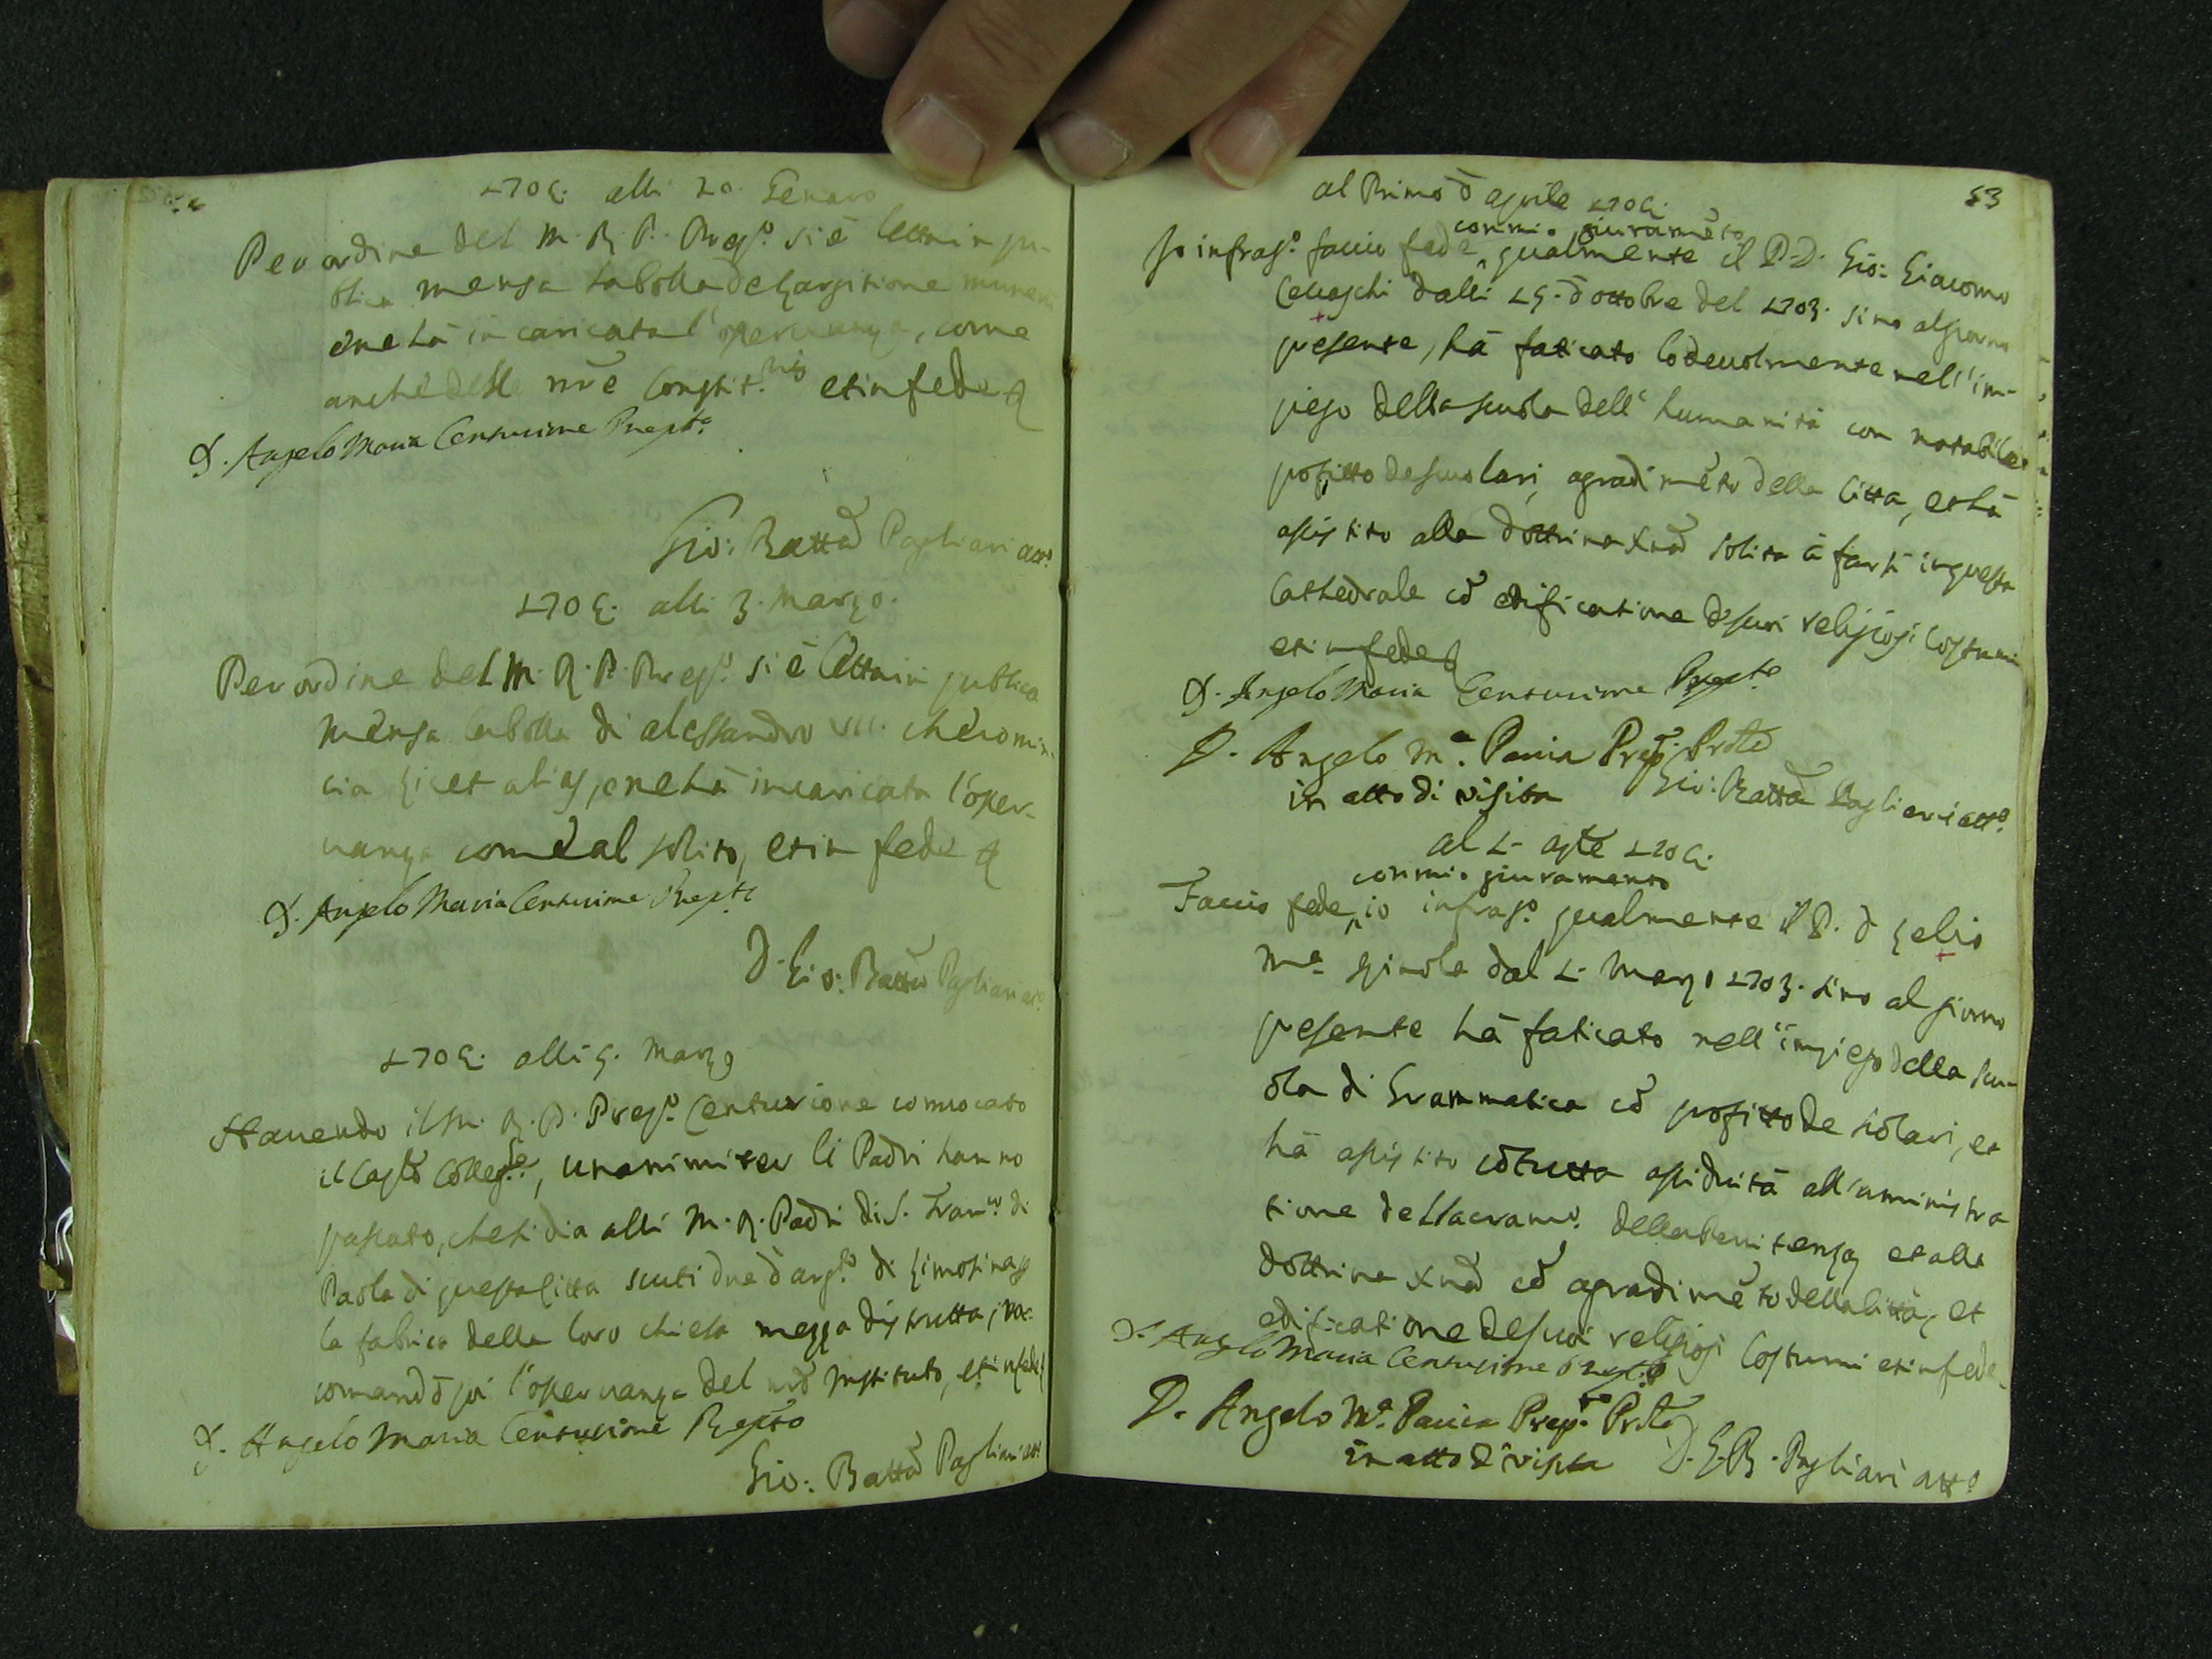 1705. alli 20 Genaro
Per ordine del M. R. P. Prep.º si è letta in pu-
blica mensa la bolla de largitione munerū
e ne hà incaricata l'osservanza, come
anche delle nr̄e Constit.ni et in fede
D. Angelo Maria Centurione Prepto
Gio: Batta Pagliari atto
1705. alli 3. Marzo.
Per ordine del M. R. P. Prep.º si è letta in publica
mensa la bolla di Alessandro VII. che comin-
cia licet alias, e ne hà incaricata l'osser-
vanza come al solito, et in fede
D. Angelo Maria Centurione Prepto
D. Gio: Batta Pagliari atto
1705. alli 5. Marzo
Havendo il M. R. P. Prep.º Centurione convocato
il Caplo Colleg.le, unanimiter li Padri hanno
passato, che si dia alli M. R. Padri di S. Fran.co di
Paola di questa Città scuti due d'arg.to di limosina p
la fabrica della loro chiesa mezza distrutta, rac-
comandò poi l'osservanza del nrō Instituto, et in fede
D. Angelo Maria Centurione Prepto
Gio: Batta Pagliari atto
53
al Primo d'aprile 1705.
con mio giuramēto
Io infras.º faccio fede, qualmente il P. D. Gio: Giacomo
Cevaschi dalli 15. d'ottobre del 1703. sino al giorno
presente, hà faticato lodevolmente nell'im-
piego della scuola dell'humanità con notabile
profitto de scuolari, agradimēto della Città, et hà
assistito alla dottrina xnā solita à farsi in questa
Cathedrale cō edificatione de suoi religiosi costumi
et in fede
D. Angelo Maria Centurione Prepto
D. Angelo M.a Pavia Prep.to Prōle
in atto di visita Gio: Batta Pagliari atto
al 1. aple 1705.
con mio giuramento
Faccio fede, io infras.º qualmente il P. D. Lelio
M.a Spinola dal 1. Marzo 1703. sino al giorno
presente hà faticato nell'impiego della scu-
ola di Grammatica cō profitto de scolari, et
hà assistito cō tutta assiduità all'aministra
tione del sacram.º della penitenza et alla
dottrina xnā cō agradimēto della Città, et
edificatione de suoi religiosi costumi et in fede
D. Angelo Maria Centurione Prepto
D. Angelo M.a Pavia Prep.to Prōle
in atto di visita D. G. B. Pagliari atto